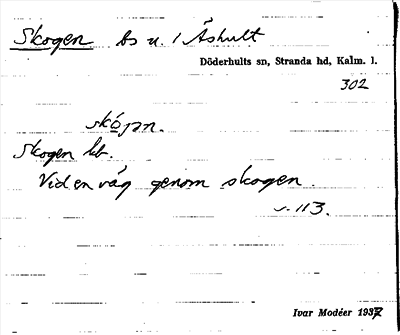 Skogen bs u. / Åshult
Döderhults sn, Stranda hd, Kalm. l.
302
skógən.
Skogen kb.
Vid en väg genom skogen.
s. 113.
Ivar Modéer 1937